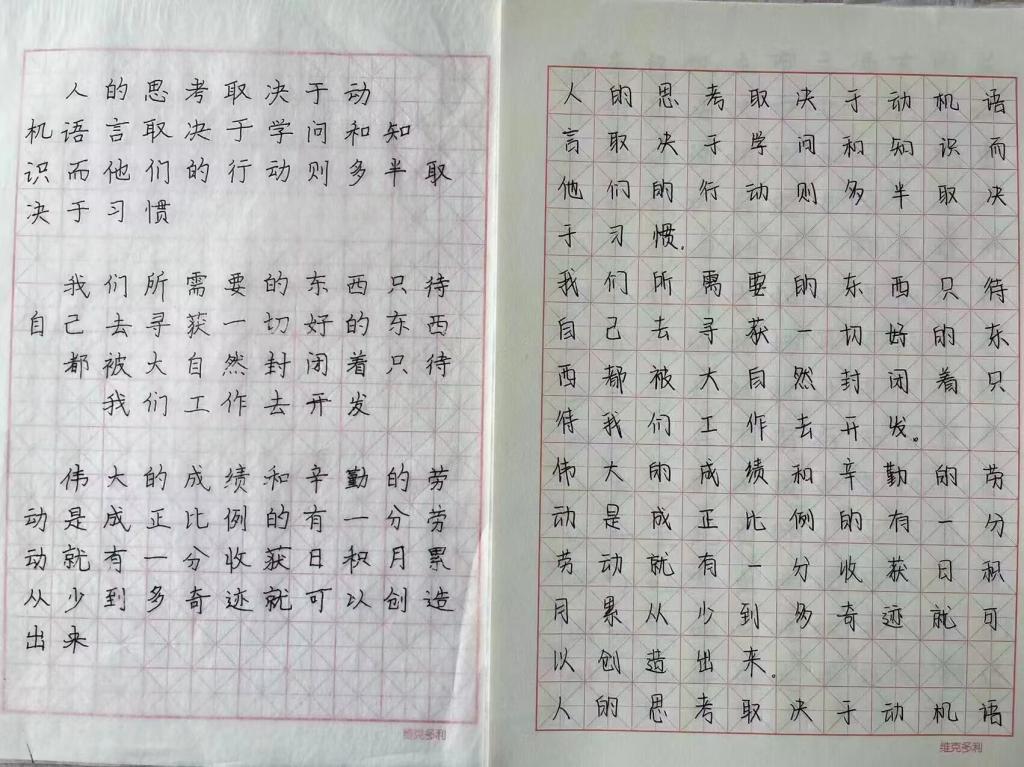 人的思考取决于动
机语言取决于学问和知
识而他们的行动则多半取
决于习惯
我们所需要的东西只待
自己去寻获一切好的东西
都被大自然封闭着只待
我们工作去开发
伟大的成绩和辛勤的劳
动是成正比例的有一分劳
动就有一分收获日积月累
从少到多奇迹就可以创造
出来
维克多利
人的思考取决于动机语
言取决于学问和知识而
他们的行动则多半取决
于习惯.
我们所需要的东西只待
自己去寻获一切好的东
西都被大自然封闭着只
待我们工作去开发。
伟大的成绩和辛勤的劳
动是成正比例的有一分
劳动就有一分收获日积
月累从少到多奇迹就可
以创造出来。
人的思考取决于动机语
维克多利